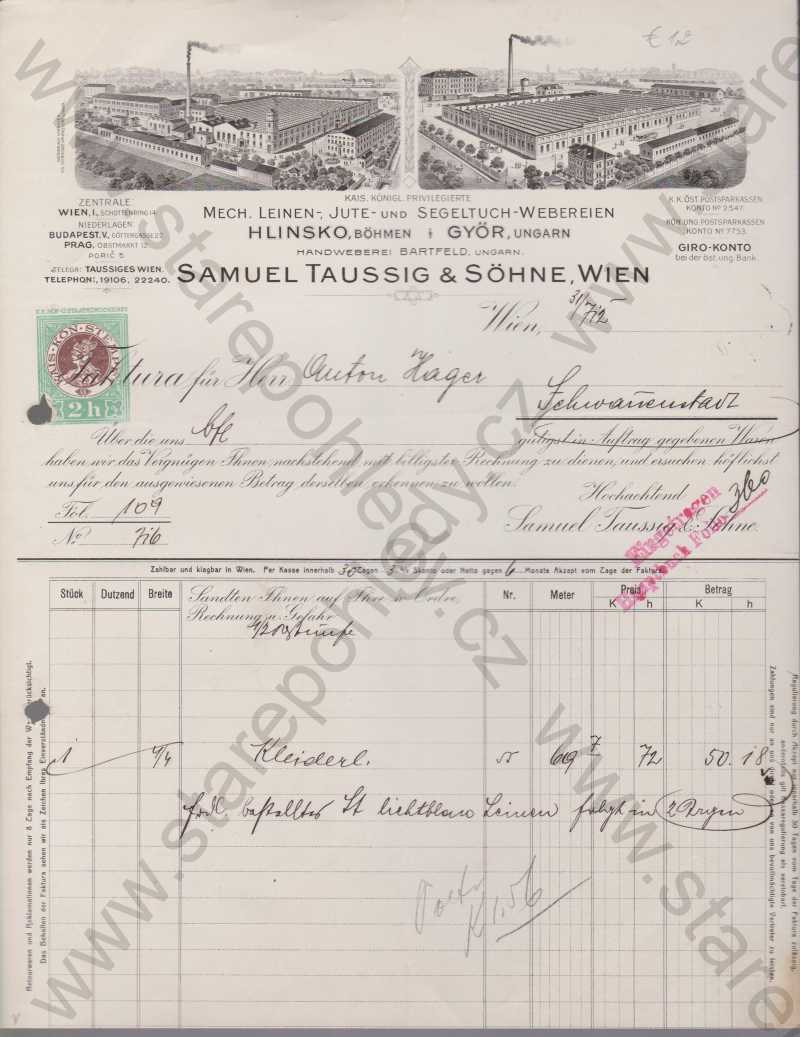 € 12
ZENTRALE
WIEN, I., SCHOTTENRING 14
NIEDERLAGEN
BUDAPEST. V., GÖTTERGASSE 22
PRAG, OBSTMARKT 12
PORIČ 5
TELEGR.: TAUSSIGES WIEN.
TELEPHON:, 19106, 22240.
KAIS. KÖNIGL. PRIVILEGIERTE
MECH. LEINEN-, JUTE- UND SEGELTUCH-WEBEREIEN
HLINSKO, BÖHMEN GYÖR, UNGARN
HANDWEBEREI BARTFELD, UNGARN.
SAMUEL TAUSSIG & SÖHNE, WIEN
K. K. ÖST. POSTSPARKASSEN
KONTO No 2547.
KÖN. UNG. POSTSPARKASSEN
KONTO No 7753.
GIRO-KONTO
bei der öst. ung. Bank.
Wien, 31/7 12
K.K. HOF- U. STAATSDRUCKEREI
KAIS·KÖN·STEMPEL
2 h
Faktura für Herr Anton Hager
Schwanenstadt
Über die uns gütigst in Auftrag gegebenen Waren
haben wir das Vergnügen Ihnen nachstehend mit billigster Rechnung zu dienen, und ersuchen höflichst
uns für den ausgewiesenen Betrag derselben erkennen zu wollen.
Hochachtend
Fol. 109
Samuel Taussig & Söhne.
No 716
Eingetragen
Zahlbar und klagbar in Wien. Per Kasse innerhalb 30 Tagen 3 % Skonto oder Netto gegen 6 Monats Akzept vom Tage der Faktura.
Stück Dutzend Breite Sandten Ihnen auf Ihre w. Ordre, Nr. Meter Preis Betrag
Rechnung u. Gefahr K h K h
1 4/4 Kleiderl. 69 7 72 50.18
bestelltes St lichtblau Leinen folgt in
Porto
K 1.56
Retourwaren und Reklamationen werden nur 8 Tage nach Empfang der Ware berücksichtigt.
Das Behalten der Faktura sehen wir als Zeichen Ihres Einverständnisses an.
Zahlungen sind nur an uns oder an von uns bevollmächtigte Vertreter zu leisten.
www.starepohledy.cz
www.starepohledy.cz
www.starepohledy.cz
www.stare